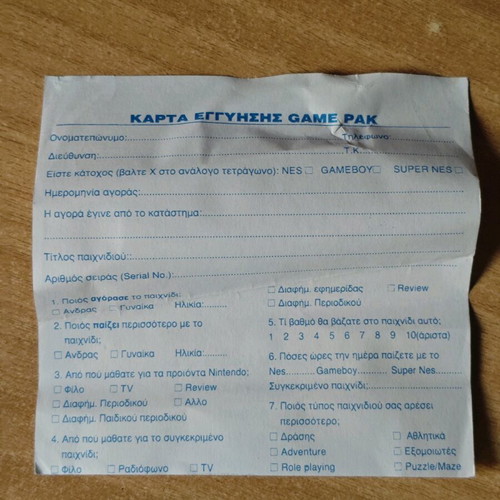 ΚΑΡΤΑ ΕΓΓΥΗΣΗΣ GAME PAK
Ονοματεπώνυμο:................Τηλέφωνο:................
Διεύθυνση:................Τ.Κ.................
Είστε κάτοχος (βαλτε Χ στο ανάλογο τετράγωνο): NES □ GAMEBOY □ SUPER NES □
Ημερομηνία αγοράς:................
Η αγορά έγινε από το κατάστημα:................
Τίτλος παιχνιδιού::................
Αριθμός σειράς (Serial No.):................
1. Ποιός αγόρασε το παιχνίδι;
□ Ανδρας □ Γυναίκα Ηλικία:.........
2. Ποιός παίζει περισσότερο με το
παιχνίδι;
□ Ανδρας □ Γυναίκα Ηλικία:.........
3. Από πού μάθατε για τα προϊόντα Nintendo;
□ Φίλο □ TV □ Review
□ Διαφήμ. Περιοδικού □ Αλλο
□ Διαφήμ. Παιδικού περιοδικού
4. Από πού μάθατε για το συγκεκριμένο
παιχνίδι;
□ Φίλο □ Ραδιόφωνο □ TV
□ Διαφήμ. εφημερίδας □ Review
□ Διαφήμ. Περιοδικού
5. Τί βαθμό θα βάζατε στο παιχνίδι αυτό;
1 2 3 4 5 6 7 8 9 10(άριστα)
6. Πόσες ώρες την ημέρα παίζετε με το
Nes......... Gameboy......... Super Nes.........
Συγκεκριμένο παιχνίδι:.........
7. Ποιός τύπος παιχνιδιού σας αρέσει
περισσότερο;
□ Δράσης □ Αθλητικά
□ Adventure □ Εξομοιωτές
□ Role playing □ Puzzle/Maze